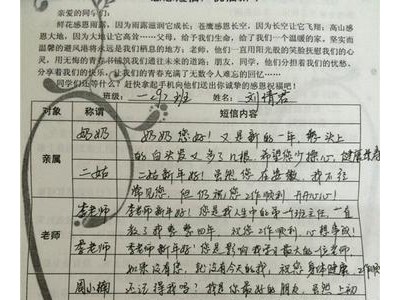 亲爱的同学们:
鲜花感恩雨露,因为雨露滋润它成长;苍鹰感恩长空,因为长空让它飞翔;高山感
恩大地,因为大地让它高耸……父母,给予我们生命,给了我们一个温暖的家,坚实而
温馨的避风港将永远是我们栖息的地方;老师,他们一直用阳光般的笑脸抚慰我们的心
灵,用无悔的青春书铺筑我们通往未来的道路;朋友,同学,他们分担着我们的忧愁,
分享着我们的快乐,让我们的青春充满了无数令人难忘的回忆……
赶快拿起手机向他们送出你诚挚的感恩祝福吧!
班级: 姓名:
对象 称谓 短信内容
奶奶 奶奶您好!又是新的一年,您头上
的白头发又多了几根,希望您少操心,健康
亲属
二姑 二姑新年好!虽然您在安徽,我不
常见您,但仍祝您工作顺利 开开心心!
李老师 李老师新年好!您是我人生中的第一班主任,一直
教了我四年,祝您工作顺利,心想事成!
老师
李老师 李老师新年好!您是影响我最大的一位老师,
如果没有您,就没有今天的我,祝您身体健康,工作
周小楠 还记得我吗?我是你最好的朋友,虽然上